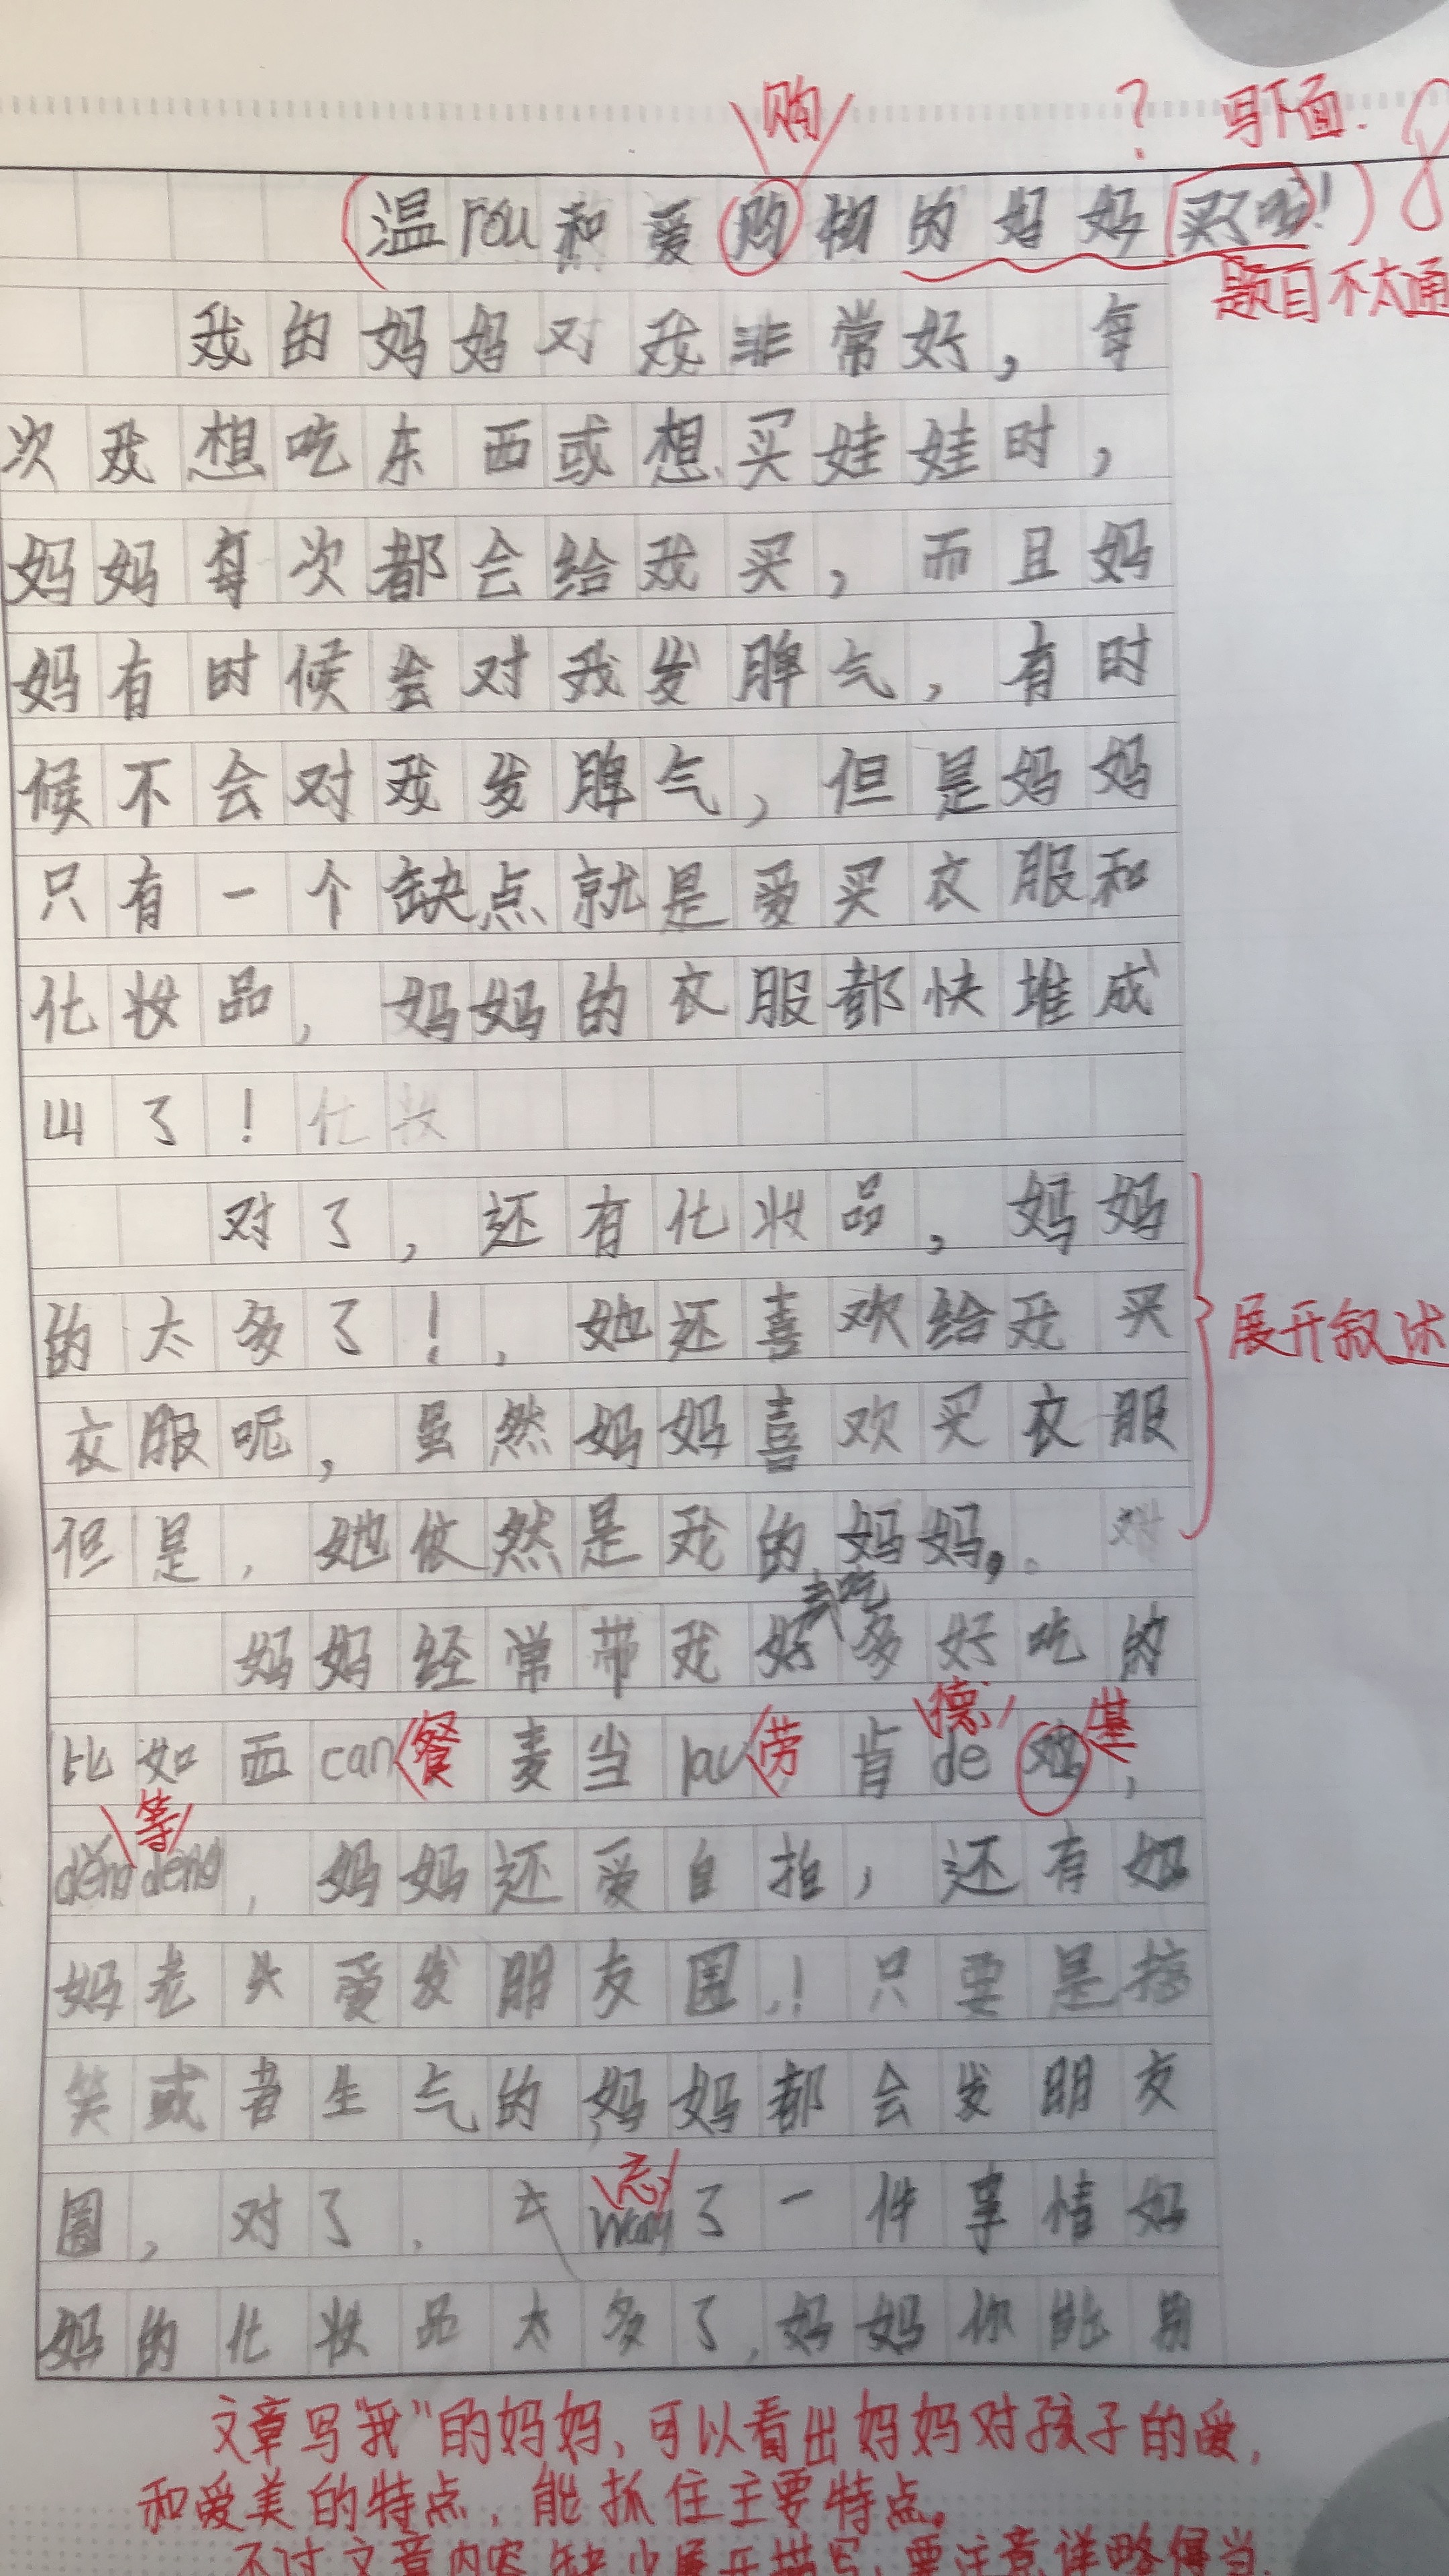 购
？ 写下面.
（温rou和爱购物的好妈买了吗！）
题目不太通
我的妈妈对我非常好，每
次我想吃东西或想买娃娃时，
妈妈每次都会给我买，而且妈
妈有时候会对我发脾气，有时
候不会对我发脾气，但是妈妈
只有一个缺点就是爱买衣服和
化妆品，妈妈的衣服都快堆成
山了！化妆
对了，还有化妆品，妈妈
的太多了！，她还喜欢给我买
展开叙述
衣服呢，虽然妈妈喜欢买衣服
但是，她依然是我的妈妈。对
去吃
妈妈经常带我好多好吃的
餐 劳 德 基
比如西can麦当lau肯de姬，
等
děngděng，妈妈还爱自拍，还有妈
妈老头爱发朋友圈！只要是搞
笑或者生气的，妈妈都会发朋友
忘
圈，对了，wang了一件事情妈
妈的化妆品太多了，妈妈你能别
文章写“我”的妈妈、可以看出妈妈对孩子的爱，
和爱美的特点，能抓住主要特点。
不过文章内容缺少展开描写，要注意详略得当